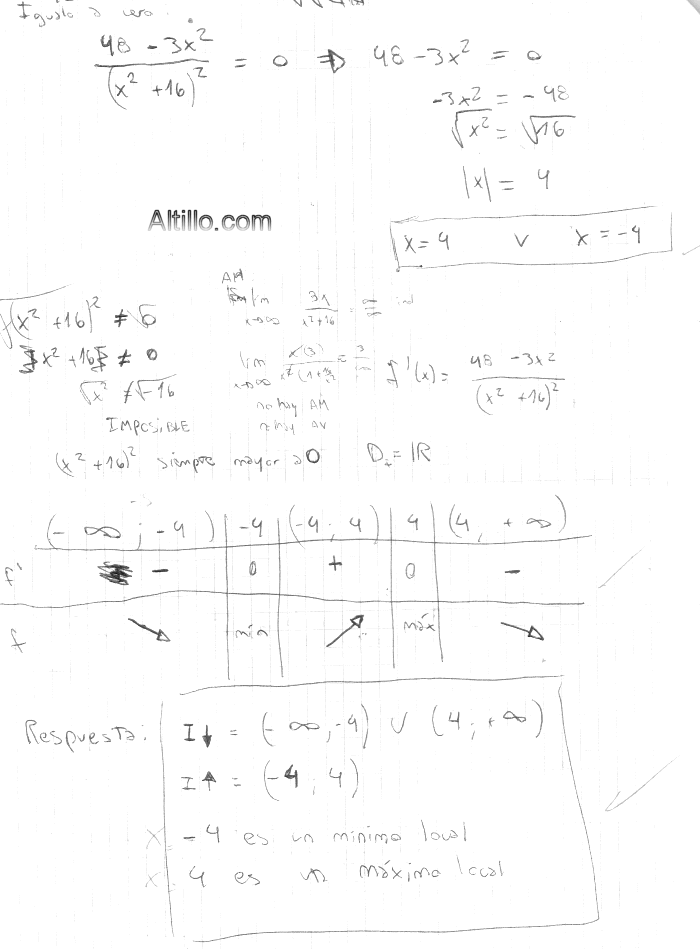 Igualo a cero:
(48 - 3x²)/(x² + 16)² = 0 ⇒ 48 - 3x² = 0
-3x² = -48
√x² = √16
|x| = 4
Altillo.com
x = 4 ∨ x = -4
AH
lim x→∞ 3x/(x²+16) = ∞/∞ ind
√(x² + 16)² ≠ √0
x² + 16 ≠ 0
√x² ≠ √-16
IMPOSIBLE
lim x→∞
no hay AH
no hay AV
f'(x) = (48 - 3x²)/(x² + 16)²
(x² + 16)² siempre mayor a 0 D = IR
(-∞; -4) | -4 | (-4; 4) | 4 | (4; +∞)
f' - | 0 | + | 0 | -
f ↘ | mín | ↗ | máx | ↘
Respuesta: I↓ = (-∞, -4) ∪ (4; +∞)
I↑ = (-4; 4)
x = -4 es un mínimo local
x = 4 es un máximo local